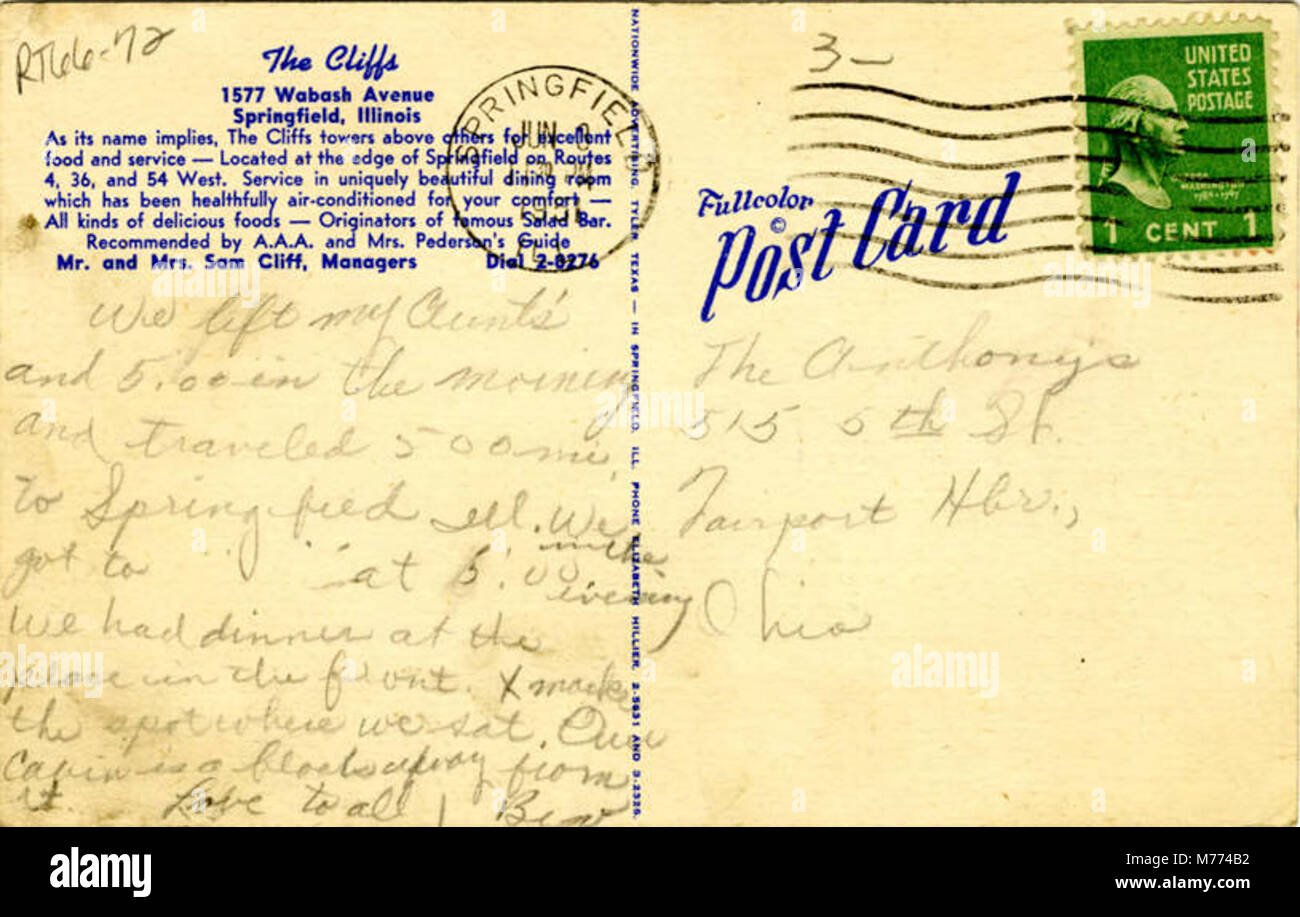 RT66-72
The Cliffs
1577 Wabash Avenue
Springfield, Illinois
As its name implies, The Cliffs towers above others for excellent
food and service — Located at the edge of Springfield on Routes
4, 36, and 54 West. Service in uniquely beautiful dining room
which has been healthfully air-conditioned for your comfort —
All kinds of delicious foods — Originators of famous Salad Bar.
Recommended by A.A.A. and Mrs. Pederson's Guide
Mr. and Mrs. Sam Cliff, Managers Dial 2-8276
We left my Aunt's
and 5:00 in the morning
and traveled 500 mi,
to Springfield Ill. We
got to at 5:00 in the
evening
We had dinner at the
place in the front. X marks
the spot where we sat. Our
cabin is a block away from
it. Love to all
NATIONWIDE ADVERTISING, TYLER, TEXAS — IN SPRINGFIELD, ILL. PHONE ELIZABETH HILLIER, 2-5631 AND 3-2325.
SPRINGFIELD
JUN
ILL
3—
UNITED
STATES
POSTAGE
WASHINGTON
1 CENT 1
Fullcolor
©
Post Card
The Anthonys
515 5th St.
Fairport Hbr.,
Ohio
alamy
alamy
Image ID: M774B2
www.alamy.com